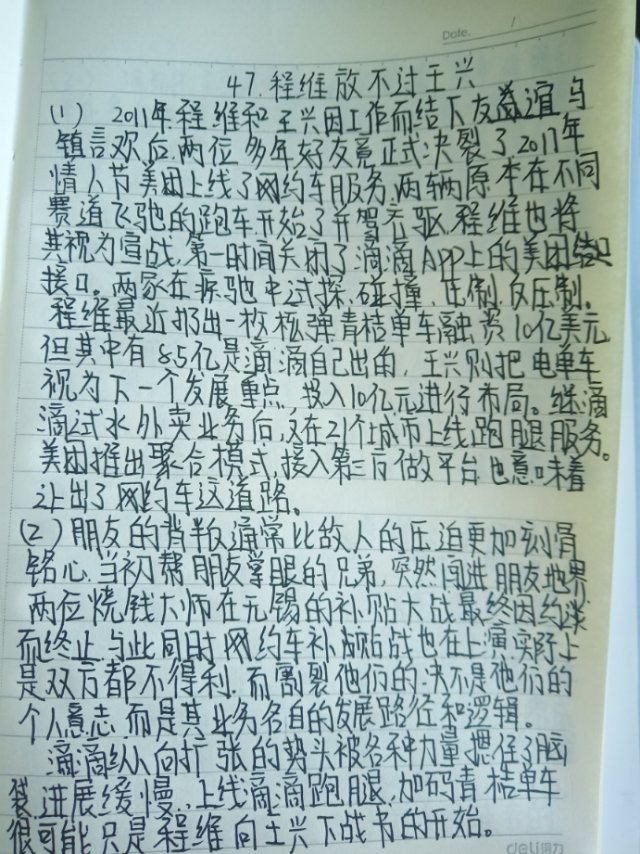 Date. /
47.程维放不过王兴
(1) 2011年,程维和王兴因工作而结下友谊,乌
镇言欢后,两位多年好友竟正式决裂了,2017年
情人节美团上线了网约车服务,两辆原本在不同
赛道飞驰的跑车开始了并驾齐驱,程维也将
其视为宣战,第一时间关闭了滴滴APP上的美团
接口。两家在疾驰中试探、碰撞、压制、反压制。
程维最近扔出一枚核弹青桔单车融资10亿美元
但其中有8.5亿是滴滴自己出的,王兴则把电单车
视为下一个发展重点,投入10亿元进行布局。继滴
滴试水外卖业务后,又在21个城市上线跑腿服务。
美团推出聚合模式,接入第三方做平台,也意味着
让出了网约车这道路。
(2)朋友的背叛通常比敌人的压迫更加刻骨
铭心,当初帮朋友掌眼的兄弟,突然闯进朋友地界
两位烧钱大师在无锡的补贴大战最终因约谈
而终止,与此同时网约车补贴战也在上演,实际上
是双方都不得利,而割裂他们的,决不是他们的
个人意志,而是其业务各自的发展路径和逻辑。
滴滴纵向扩张的势头被各种力量摁住了脑
袋,进展缓慢,上线滴滴跑腿,加码青桔单车
很可能只是程维向王兴下战书的开始。
deli得力